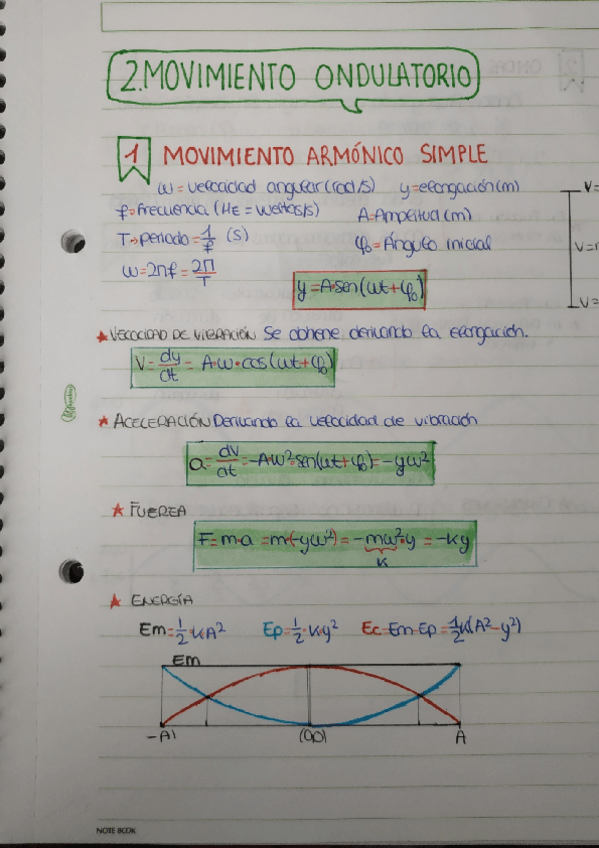 2. MOVIMIENTO ONDULATORIO
1 MOVIMIENTO ARMÓNICO SIMPLE
ω = velocidad angular (rad/s) y = elongación (m)
f = frecuencia (Hz = vueltas/s) A = Amplitud (m)
T → periodo = 1/f (s) φ₀ = Ángulo inicial
ω = 2πf = 2π/T
y = A·sen(ωt + φ₀)
V=
V=
V=
★ VELOCIDAD DE VIBRACIÓN Se obtiene derivando la elongación.
V = dy/dt = A·ω·cos(ωt + φ₀)
★ ACELERACIÓN Derivando la velocidad de vibración
a = dv/dt = -A·ω²·sen(ωt + φ₀) = -yω²
★ FUERZA
F = m·a = m·(-yω²) = -mω²·y = -Ky
K
★ ENERGÍA
Em = 1/2·KA² Ep = 1/2·K·y² Ec = Em - Ep = 1/2K(A² - y²)
Em
-A (0,0) A
NOTE BOOK